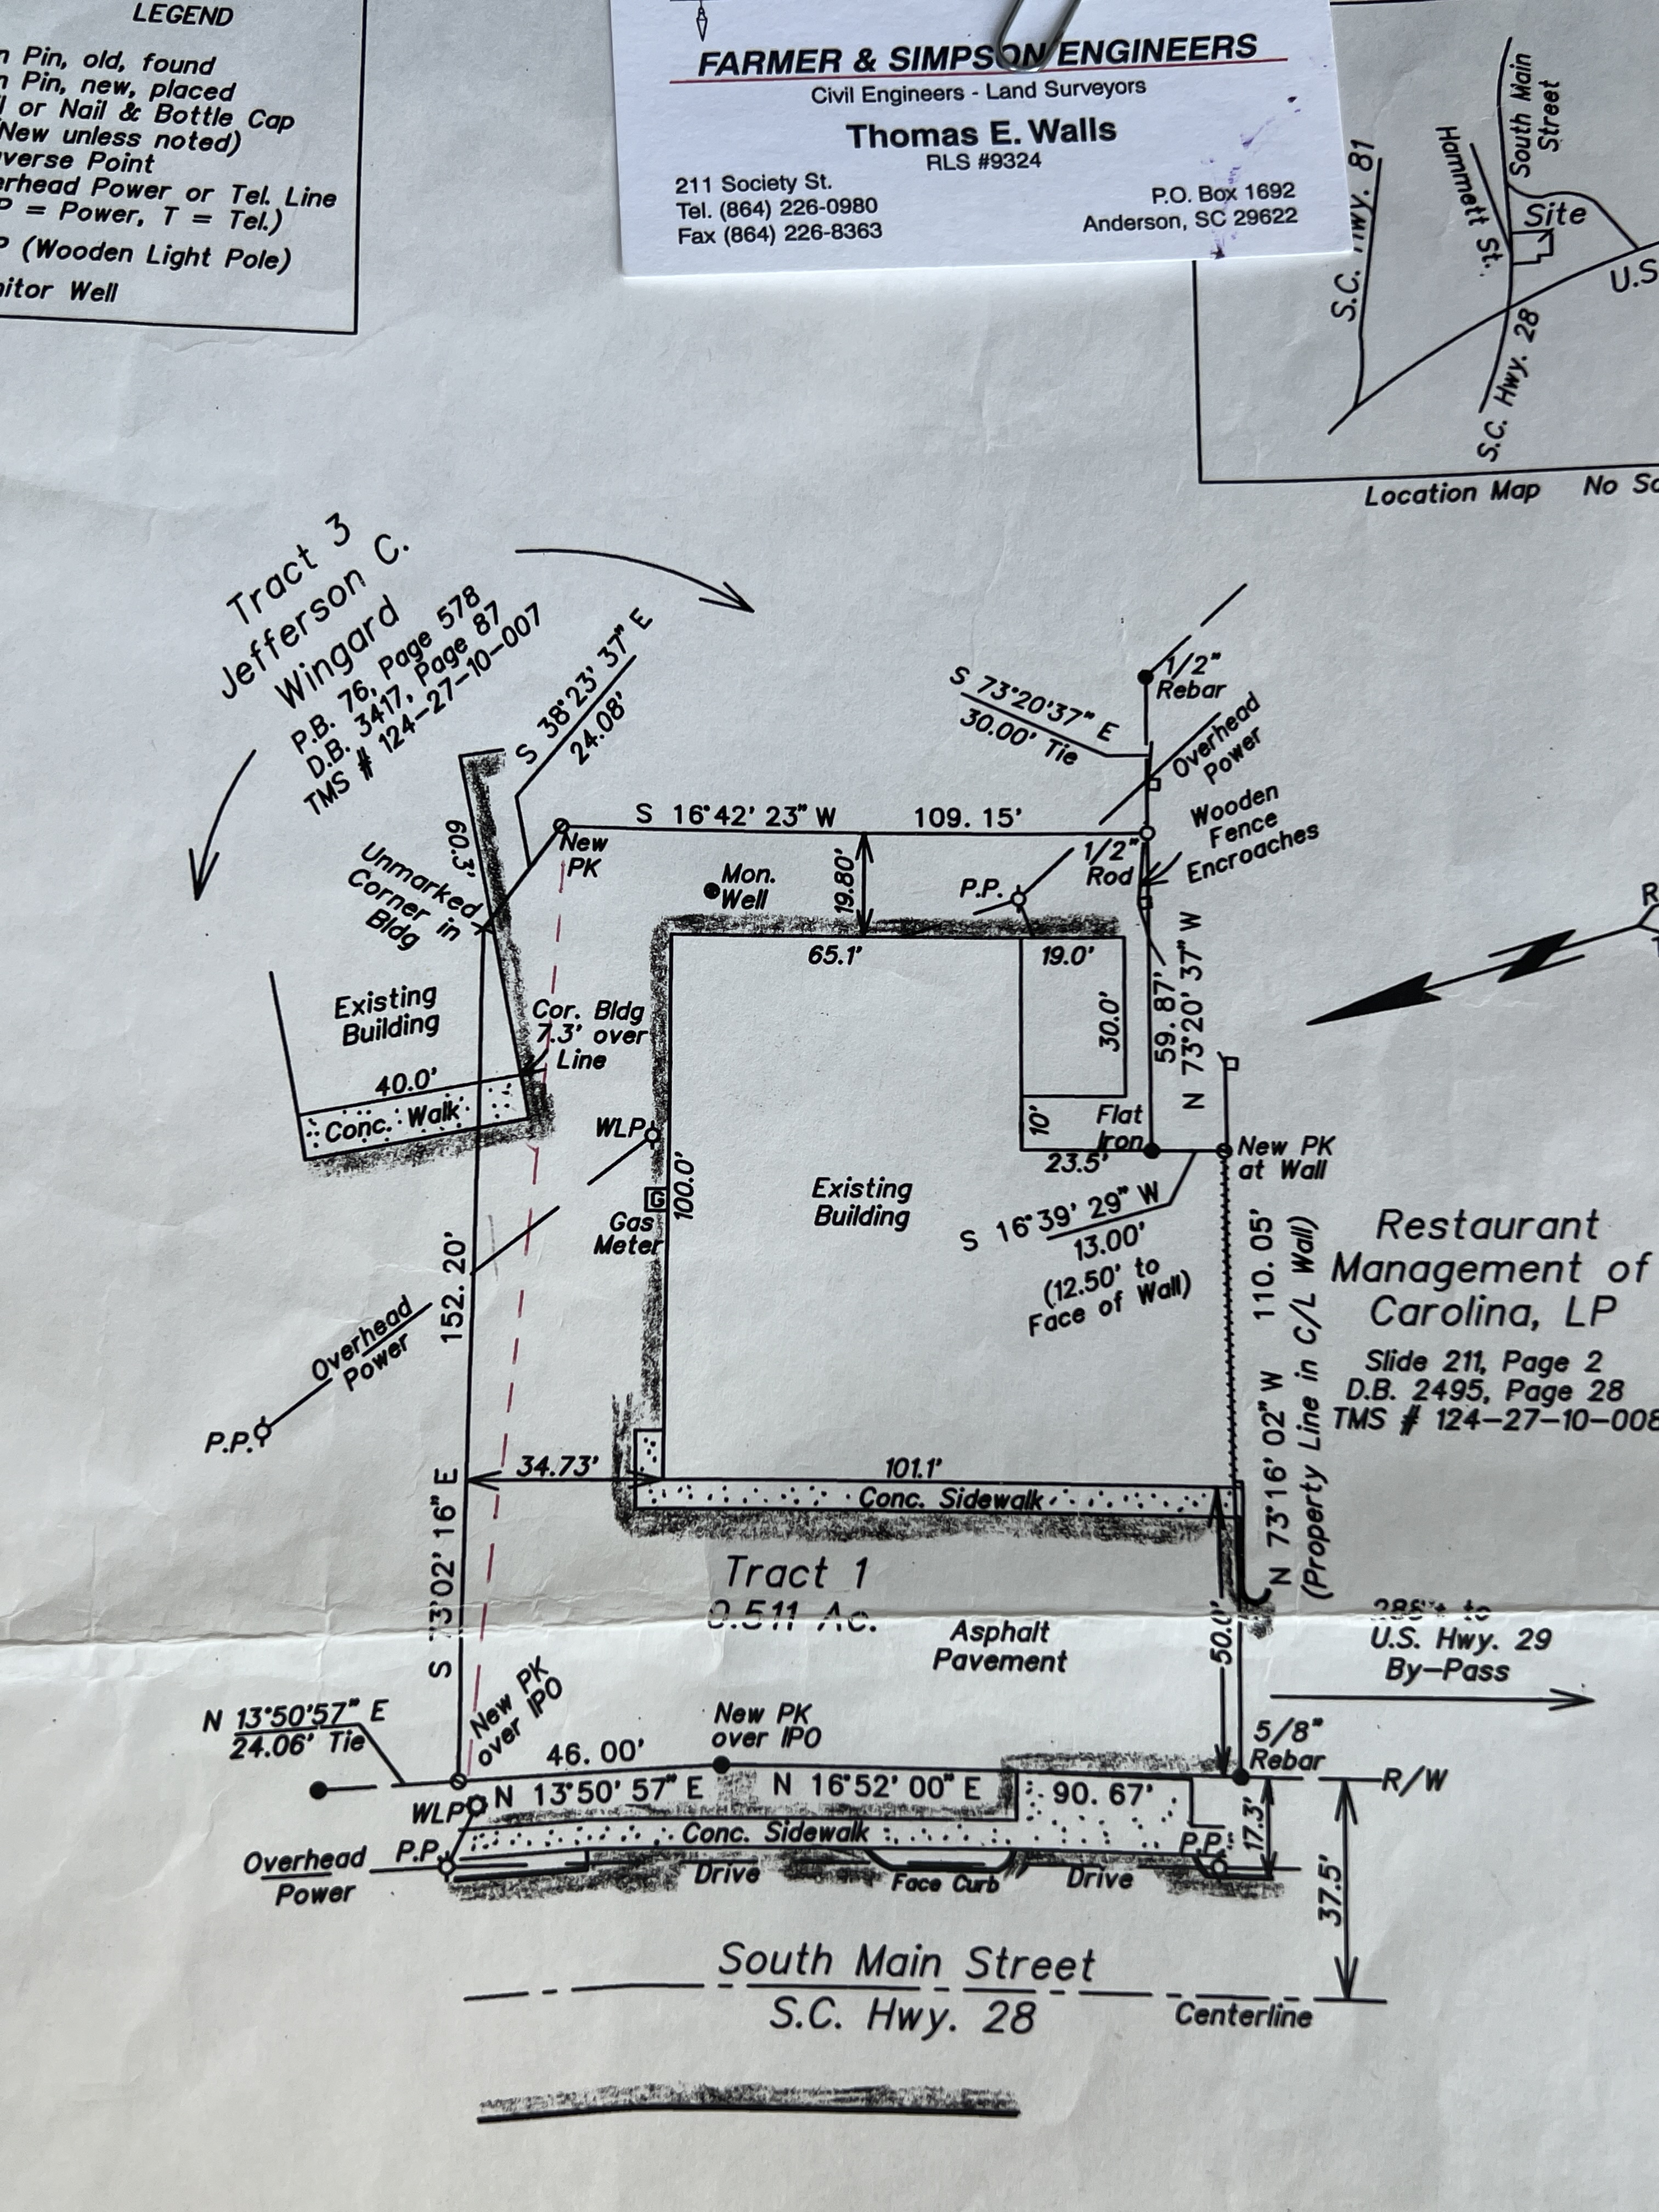 LEGEND
Pin, old, found
Pin, new, placed
or Nail & Bottle Cap
New unless noted)
verse Point
erhead Power or Tel. Line
P = Power, T = Tel.)
P (Wooden Light Pole)
nitor Well
FARMER & SIMPSON ENGINEERS
Civil Engineers - Land Surveyors
Thomas E. Walls
RLS #9324
211 Society St.
Tel. (864) 226-0980
Fax (864) 226-8363
P.O. Box 1692
Anderson, SC 29622
S.C. Hwy. 81
Hammett St.
South Main
Street
Site
U.S
S.C. Hwy. 28
Location Map No Sc
Tract 3
Jefferson C.
Wingard
P.B. 76, Page 578
D.B. 3417, Page 87
TMS # 124-27-10-007
S 38°23' 37" E
24.08'
S 73°20'37" E
30.00' Tie
1/2"
Rebar
Overhead
Power
Wooden
Fence
Encroaches
S 16°42' 23" W 109. 15'
New
PK
60.3'
Unmarked
Corner in
Bldg
Mon.
Well
19.80'
P.P.
1/2"
Rod
65.1'
19.0'
30.0'
59. 87'
N 73°20' 37" W
Existing
Building
Cor. Bldg
7.3' over
Line
40.0'
Conc. Walk
WLP
10'
Flat
Iron
23.5'
New PK
at Wall
100.0'
G
Gas
Meter
Existing
Building
S 16°39' 29" W
13.00'
(12.50' to
Face of Wall)
Restaurant
Management of
Carolina, LP
Slide 211, Page 2
D.B. 2495, Page 28
TMS # 124-27-10-008
N 73°16' 02" W 110. 05'
(Property Line in C/L Wall)
Overhead
Power
P.P.
S 73°02' 16" E 152. 20'
34.73'
101.1'
Conc. Sidewalk
Tract 1
0.511 Ac.
Asphalt
Pavement
50.0'
to
U.S. Hwy. 29
By-Pass
N 13°50'57" E
24.06' Tie
New PK
over IPO
46. 00'
New PK
over IPO
5/8"
Rebar
R/W
WLP
N 13°50' 57" E
N 16°52' 00" E
90. 67'
17.3'
Conc. Sidewalk
P.P.
P.P.
Overhead
Power
Drive
Face Curb
Drive
37.5'
South Main Street
S.C. Hwy. 28
Centerline